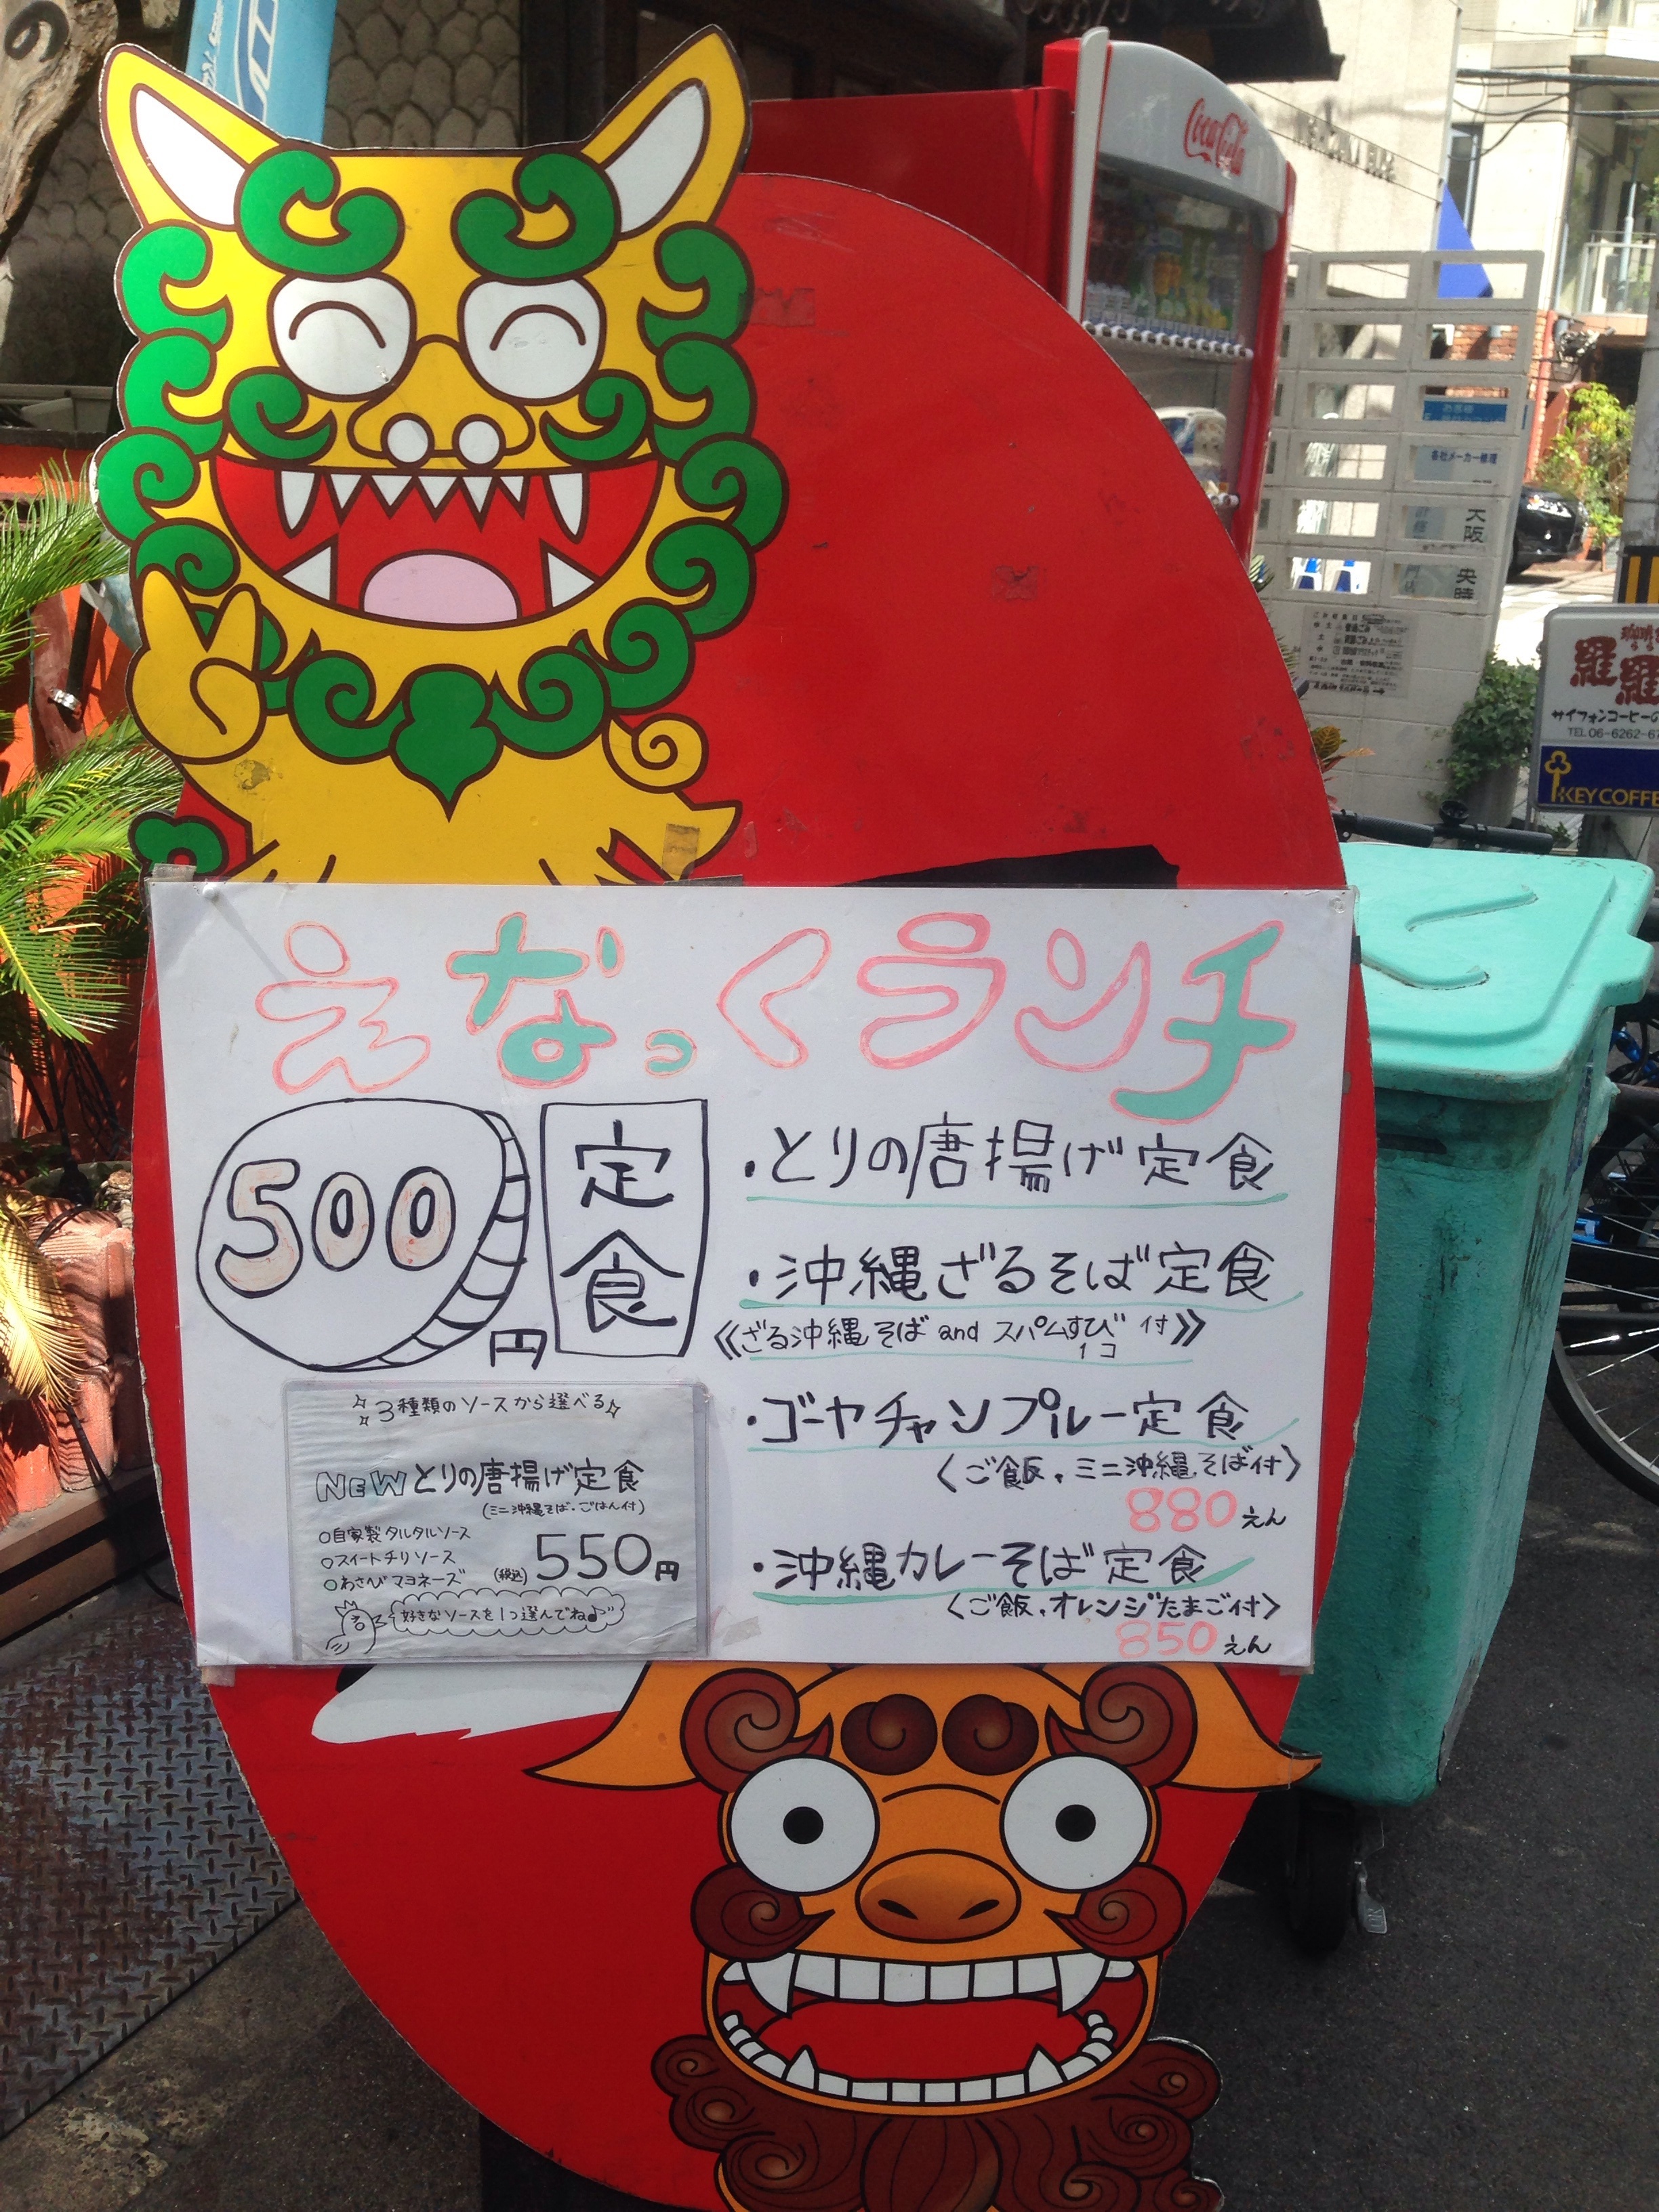 Coca-Cola
お客様
各社メーカー修理
大阪
央時
羅羅
サイフォンコーヒーの
TEL 06-6262-6
KEY COFFE
えなっくランチ
500円
定食
・とりの唐揚げ定食
・沖縄ざるそば定食
《ざる沖縄そば and スパムすび1コ付》
・ゴーヤチャンプルー定食
〈ご飯、ミニ沖縄そば付〉
880えん
・沖縄カレーそば定食
〈ご飯、オレンジたまご付〉
850えん
3種類のソースから選べる
NEW とりの唐揚げ定食
(ミニ沖縄そば・ごはん付)
○自家製タルタルソース
○スイートチリソース
○わさびマヨネーズ
(税込)550円
好きなソースを1つ選んでね♪